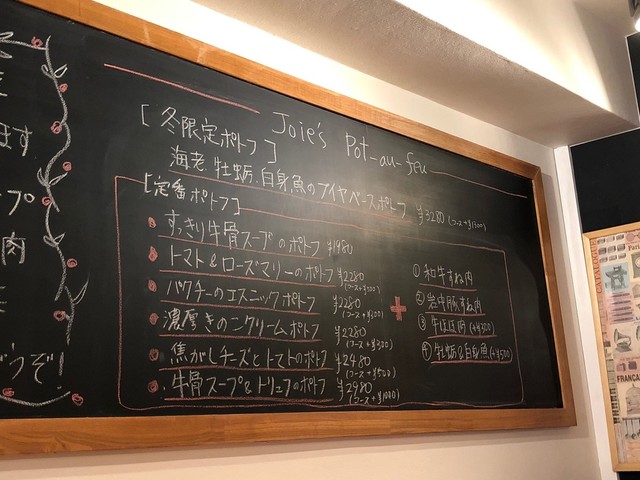 Joie's Pot-au-feu
[冬限定ポトフ]
海老、牡蛎、白身魚のブイヤベースポトフ ¥3280(コース+¥1300)
[定番ポトフ]
すっきり牛骨スープのポトフ ¥1980
トマト&ローズマリーのポトフ ¥2280(コース+¥300)
パクチーのエスニックポトフ ¥2280(コース+¥300)
濃厚きのこクリームポトフ ¥2280(コース+¥300)
焦がしチーズとトマトのポトフ ¥2480(コース+¥500)
牛骨スープ&トリュフのポトフ ¥2980(コース+¥1000)
+
① 和牛すね肉
② 岩中豚すね肉
③ 牛ほほ肉(+¥500)
④ 牡蛎&白身魚(+¥500)
ます
プ
肉
どうぞ!
Paris
FRANCA